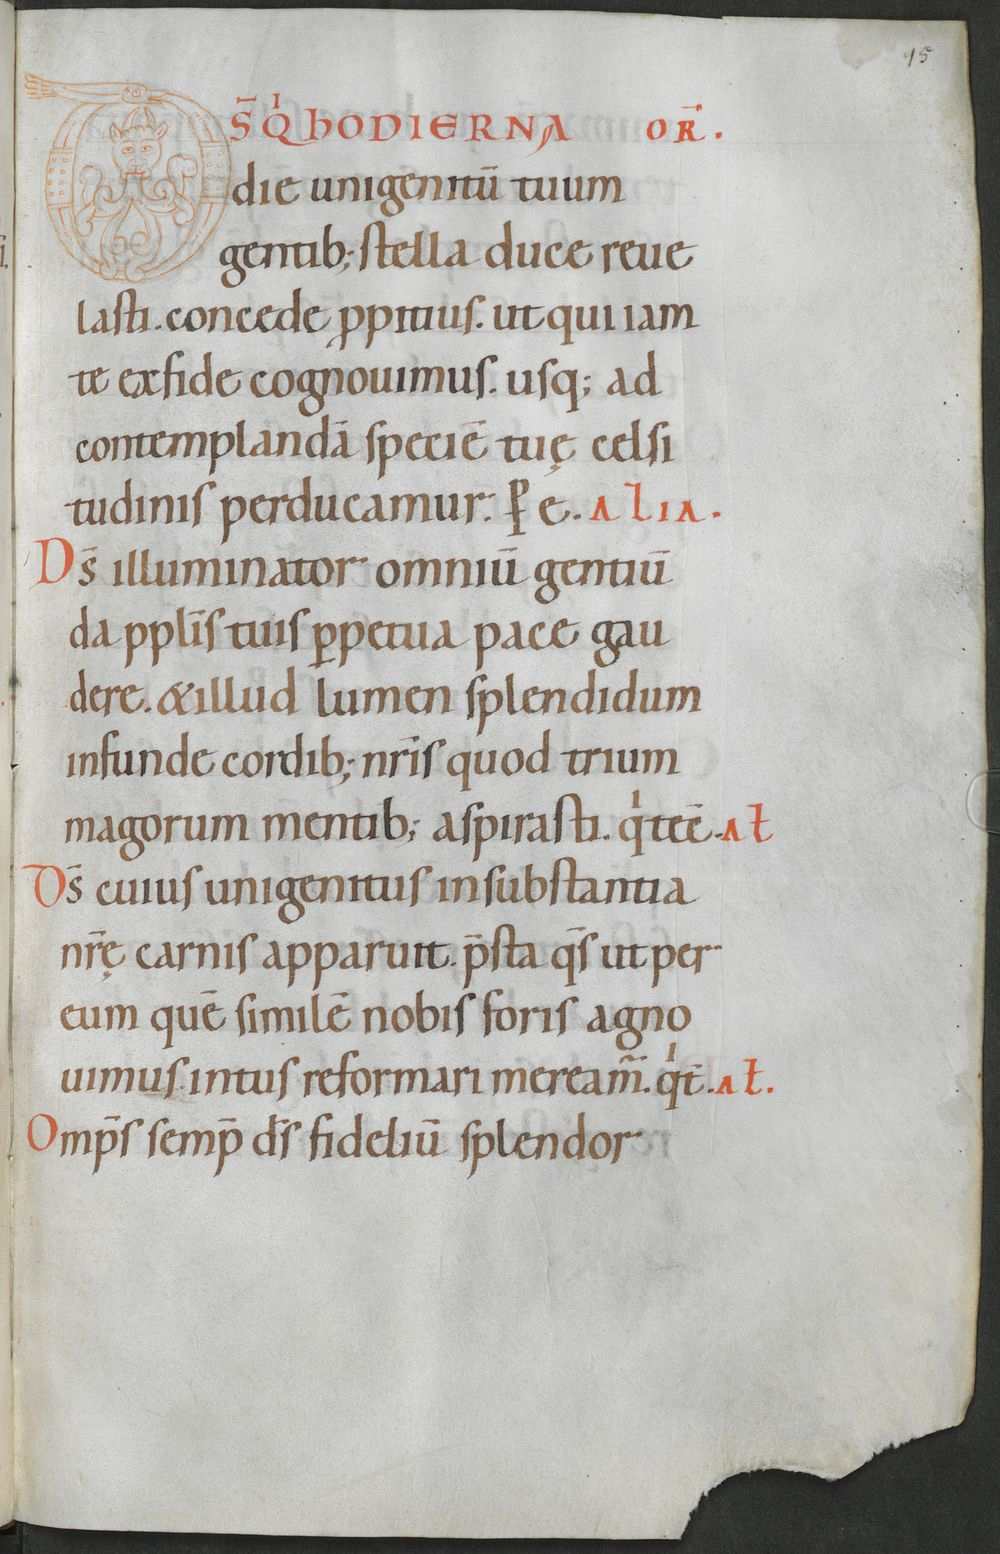 15
DS̄ QͥHODIERNA OR̄.
die unigenitū tuum
gentib; stella duce reue
lasti. concede ꝓpitius. ut qui iam
te exfide cognouimus. usq; ad
contemplandā speciē tuę celsi
tudinis perducamur. ꝑ e. ALIA.
Ds̄ illuminator omniū gentiū
da ppl̄is tuis ꝑpetua pace gau
dere. & illud lumen splendidum
infunde cordib; nr̄is quod trium
magorum mentib; aspirasti. qͥ tec̄. Aƚ
Ds̄ cuius unigenitus in substantia
nr̄ę carnis apparuit. p̄sta qs̄ ut per
eum quē similē nobis foris agno
uimus. intus reformari meream̄. qͥ t̄. Aƚ.
Omp̄s semp̄ ds̄ fideliū splendor